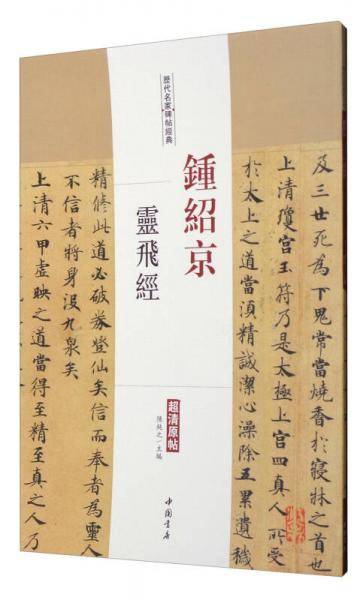 歷代名家碑帖經典
鍾紹京
靈飛經
超清原帖
陳純之 主編
中国书店
及三世死為下鬼常當燒香於寢牀之首也
上清瓊宮玉符乃是太極上宮四真人所受
於太上之道當須精誠潔心澡除五累遺穢
精修此道必破券登仙矣信而奉者為靈人
不信者將身沒九泉矣
上清六甲虛映之道當得至精至真之人乃